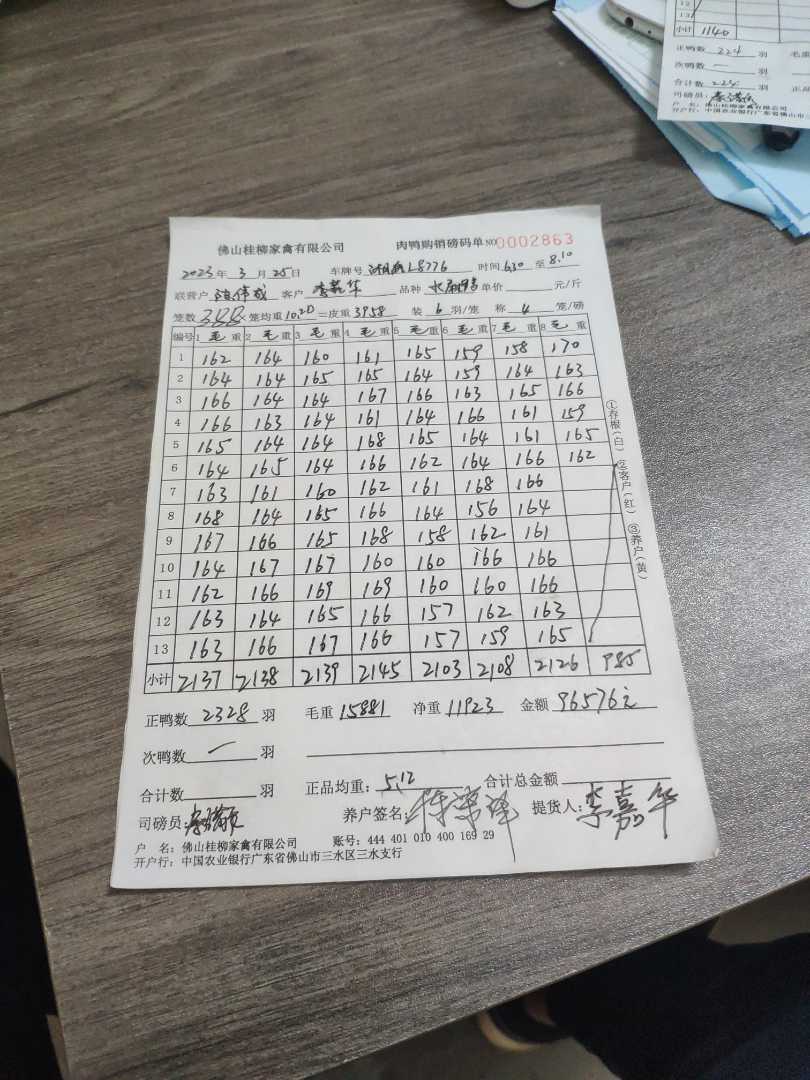 12
13
小计 1140
正鸭数 224 羽 毛重
次鸭数 一 羽
合计数 224 羽 正品
司磅员:
户 名: 佛山桂柳家禽有限公司
开户行: 中国农业银行广东省佛山市三
佛山桂柳家禽有限公司 肉鸭购销磅码单 NO 0002863
2023年 3月 25日 车牌号 L8776 时间 6:30 至 8:10
联营户 客户 李嘉华 品种 单价 元/斤
笼数 388 笼均重 10.20 =皮重 3958 装 6 羽/笼 称 4 笼/磅
编号 1 毛重 2 毛重 3 毛重 4 毛重 5 毛重 6 毛重 7 毛重 8 毛重
1 162 164 160 161 165 159 158 170
2 164 164 165 165 164 159 164 163
3 166 164 164 167 166 163 165 166
4 166 163 164 161 164 166 161 159
5 165 164 164 168 165 164 161 165
6 164 165 164 166 162 164 166 162
7 163 161 160 162 161 168 166
8 168 164 165 166 164 156 164
9 167 166 165 168 158 162 161
10 164 167 167 160 160 166 166
11 162 166 169 169 160 160 166
12 163 164 165 166 157 162 163
13 163 166 167 166 157 159 165
小计 2137 2138 2139 2145 2103 2108 2126 985
①存根(白) ②客户(红) ③养户(黄)
正鸭数 2328 羽 毛重 15881 净重 11923 金额 96576元
次鸭数 一 羽
合计数 羽 正品均重: 5.12 合计总金额
司磅员: 养户签名: 提货人: 李嘉华
户 名: 佛山桂柳家禽有限公司 账号: 444 401 010 400 169 29
开户行: 中国农业银行广东省佛山市三水区三水支行